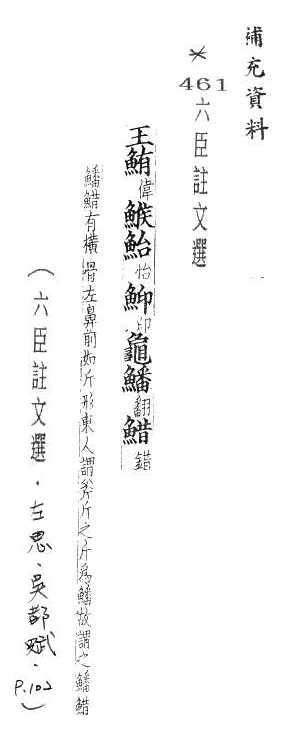 補充資料 一
* 461 六臣註文選
王鮪偉鯸鮐怡鮣印龜鱕翻䱜錯
鱕䱜有橫骨左鼻前如斤形東人謂斧斤之斤為鱕故謂之鱕䱜
(六臣註文選.左思.吳都賦.P.102)